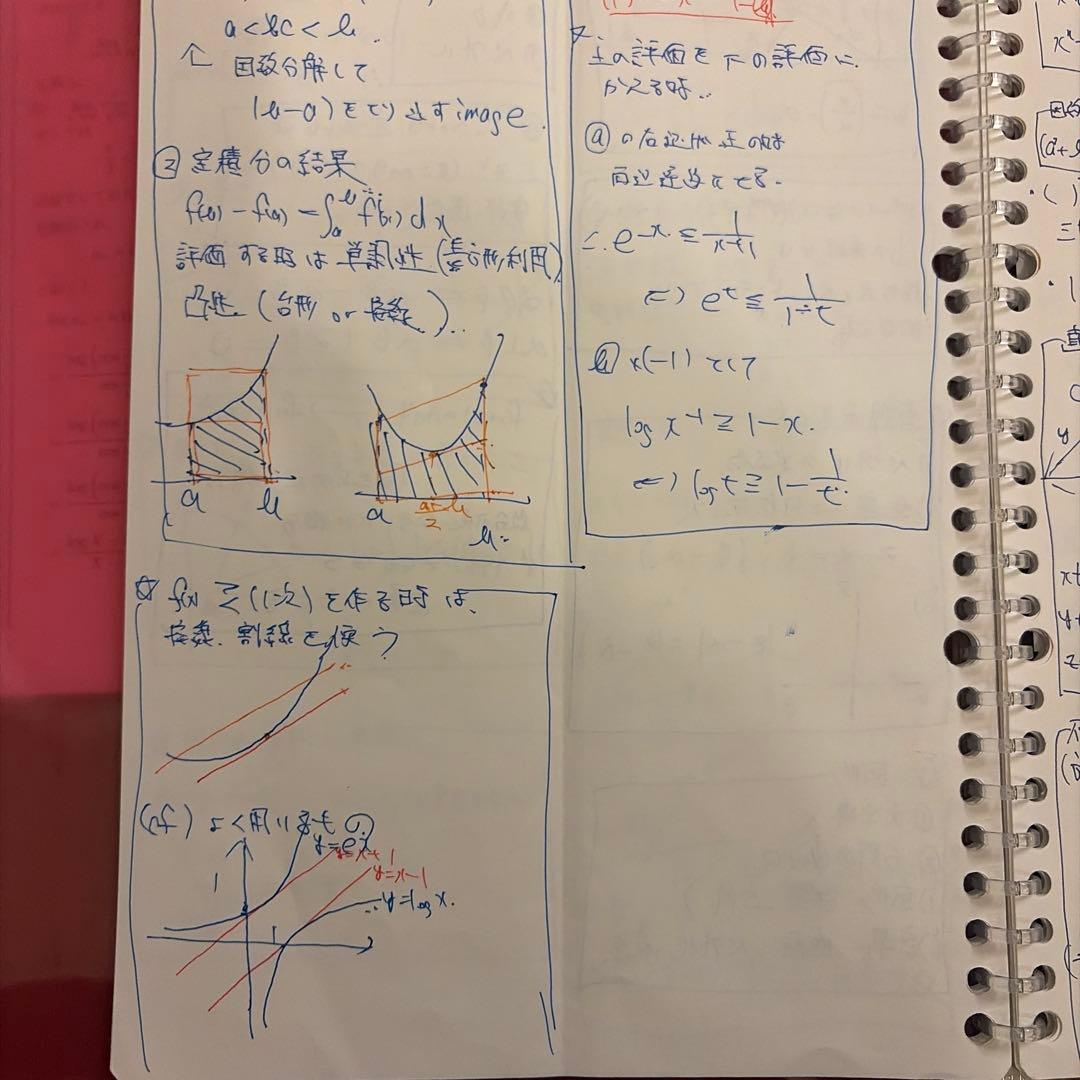 a<xc<b.
↑ 因数分解して
(b-a)をくり出すimage.
② 定積分の結果
f(b)-f(a)=∫ₐᵇf'(x)dx
評価する際は単調性(長方形利用)
凸性.(台形or接線.)...
a
b
a
a+b/2
b
☆ f(x)≧(1次)を作る時は、
接線.割線を使う
(ref) よく用いるもの
y=eˣ
y=x+1
y=x-1
y=log x.
1
1
上の評価を下の評価に
かえる時..
ⓐの右辺が正の時
両辺逆数でる.
∴ e⁻ˣ≦1/(x+1)
⇔ eᵗ≦1/(1-t)
ⓑ×(-1)して
log x⁻¹≧1-x.
⇔ log t≧1-1/t.
因数
三
y